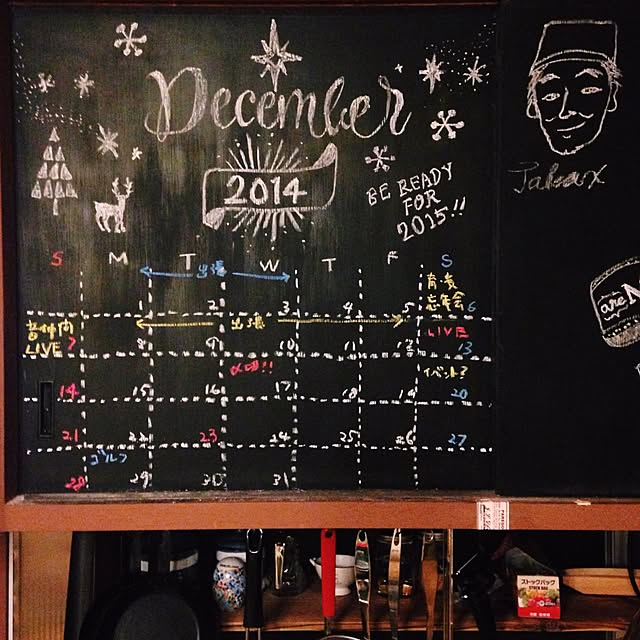 December
2014
BE READY
FOR
2015!!
S M T W T F S
出張
忘年会
1 2 3 4 5 6
音仲間
LIVE
出張
LIVE
7 8 9 10 11 12 13
イベント?
14 15 16 17 18 19 20
21 22 23 24 25 26 27
ゴルフ
29 30 31
are
ストックバッグ
STOCK BAG